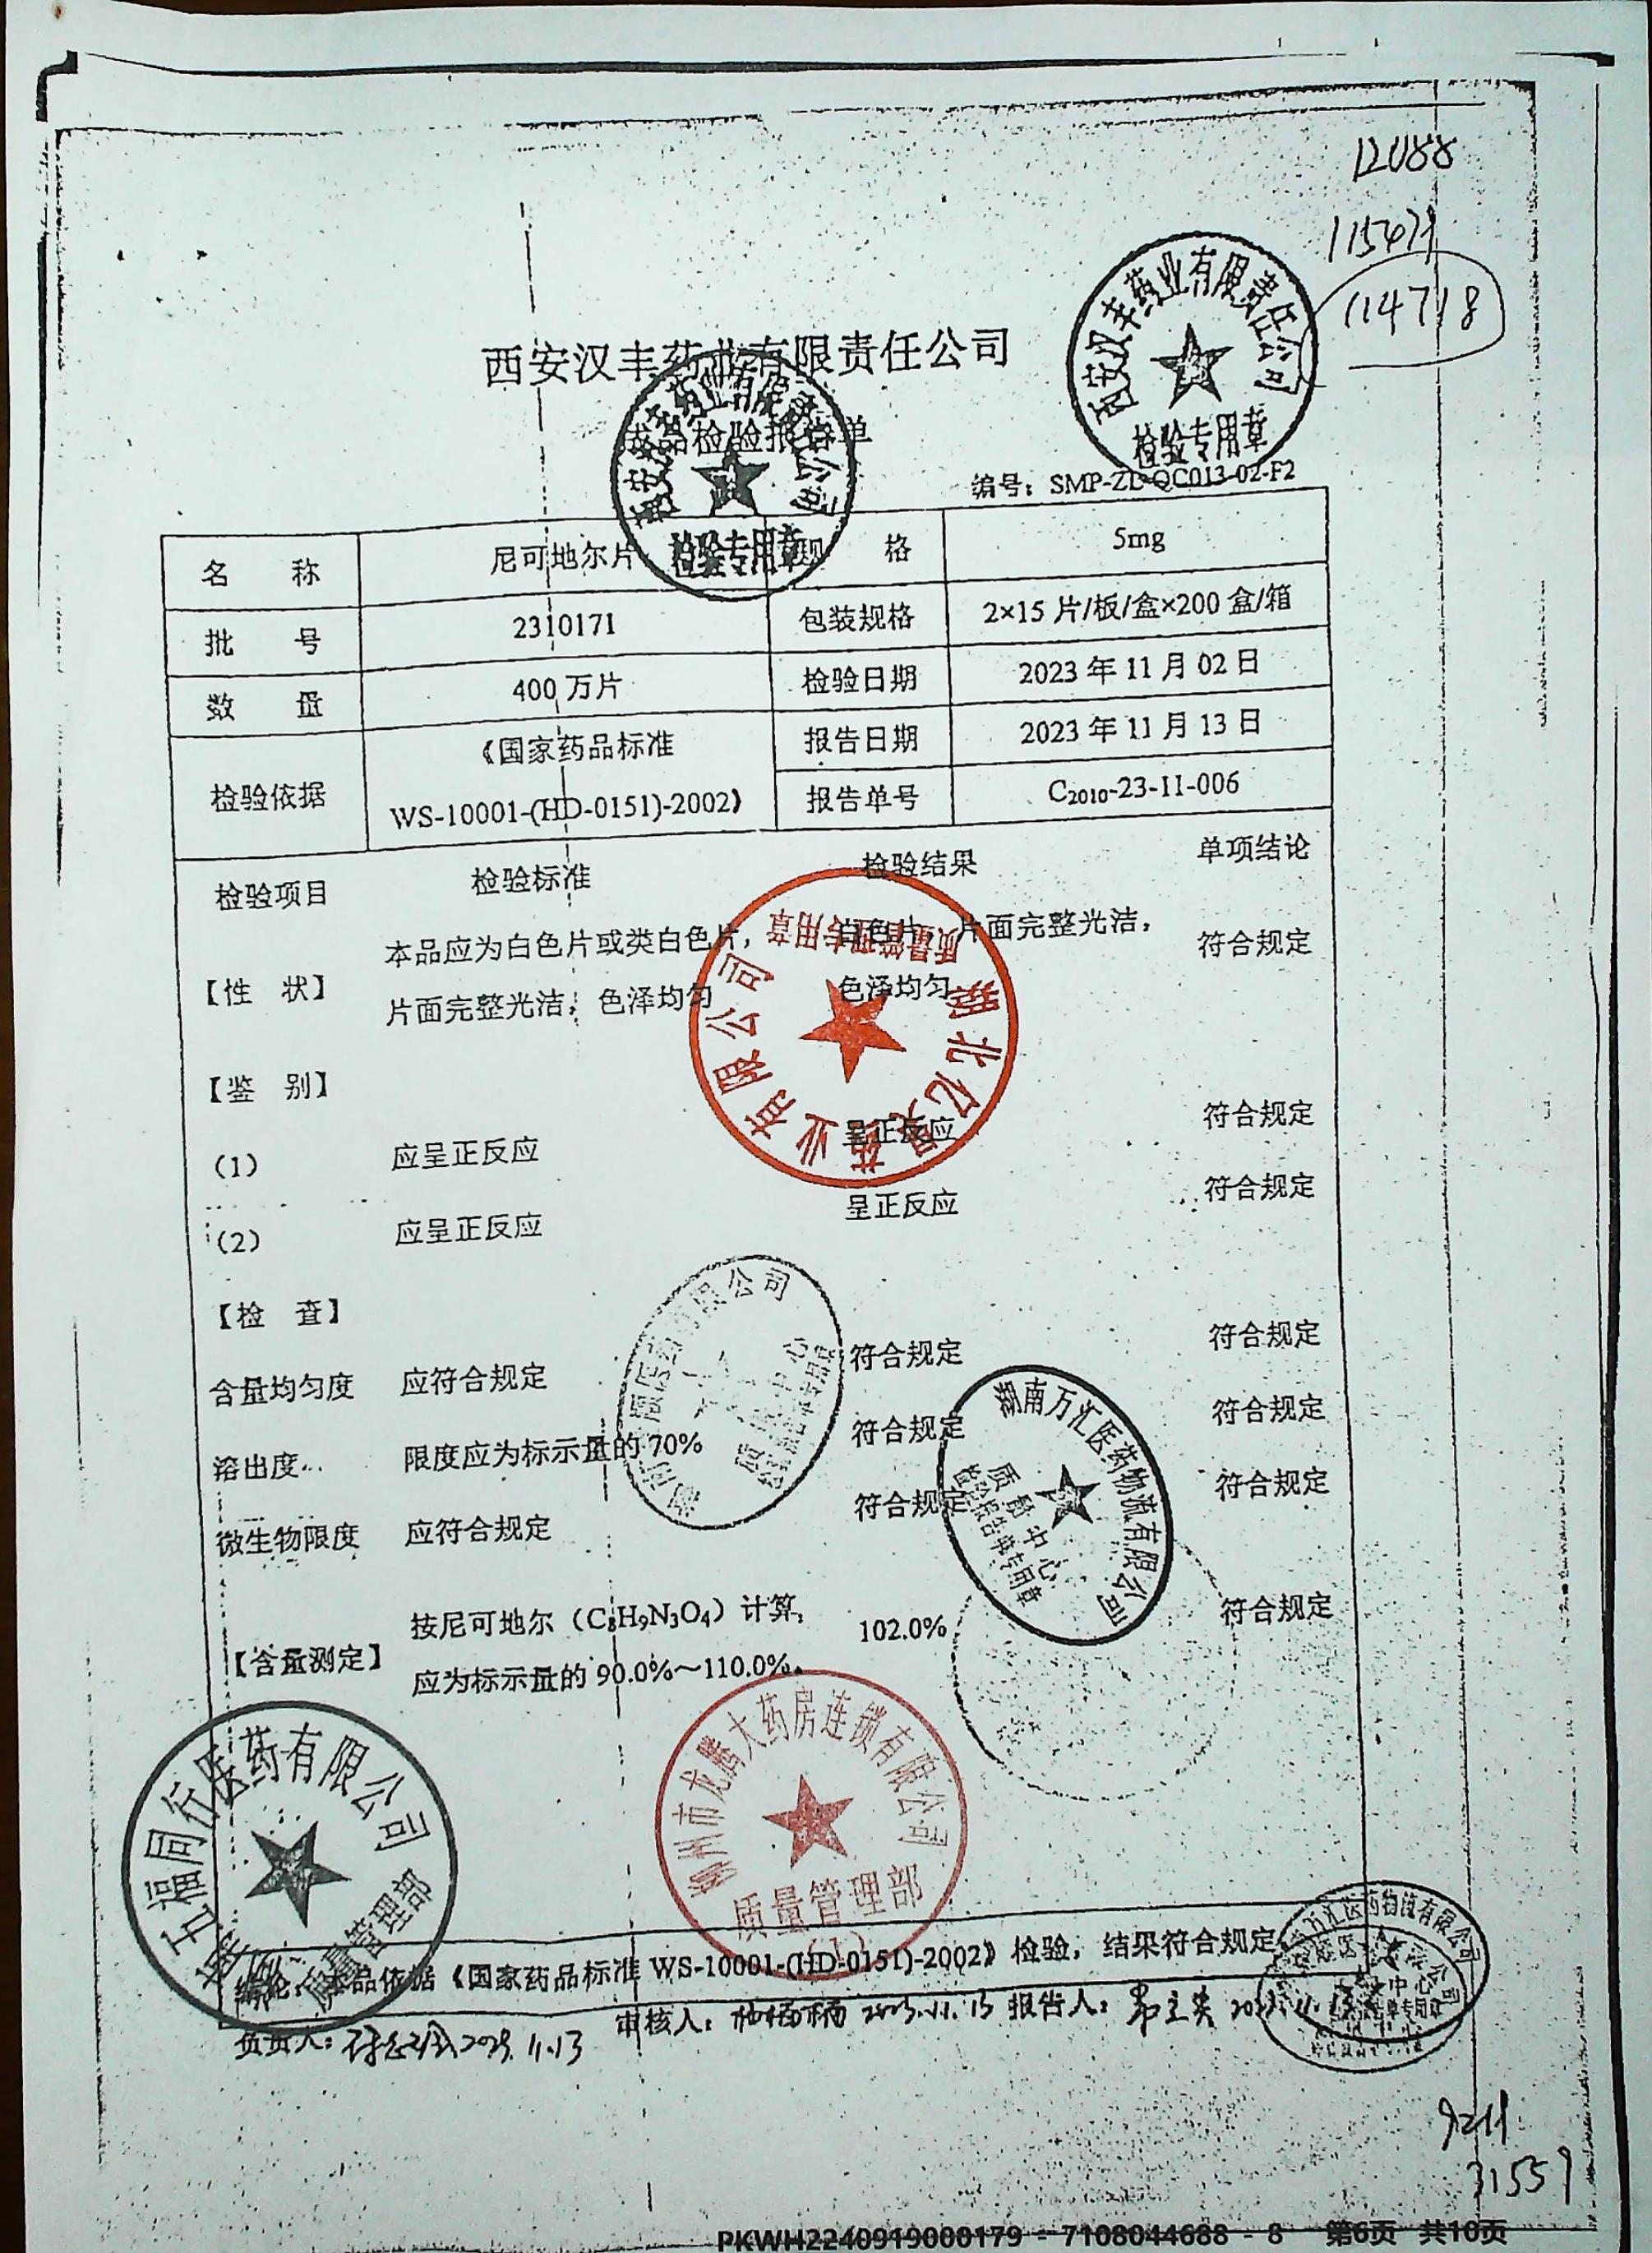 12088
115471
114718
西安汉丰药业有限责任公司
成品检验报告单
西安汉丰药业有限责任公司
检验专用章
西安汉丰药业有限责任公司
检验专用章
编号：SMP-ZL-QC013-02-F2
名 称 尼可地尔片 规 格 5mg
批 号 2310171 包装规格 2×15 片/板/盒×200 盒/箱
数 量 400 万片 检验日期 2023 年 11 月 02 日
检验依据 《国家药品标准 WS-10001-(HD-0151)-2002》 报告日期 2023 年 11 月 13 日
报告单号 C2010-23-11-006
检验项目 检验标准 检验结果 单项结论
【性 状】 本品应为白色片或类白色片， 白色片，片面完整光洁， 符合规定
片面完整光洁，色泽均匀 色泽均匀
湖北亿昊药业有限公司
质量管理专用章
【鉴 别】
（1） 应呈正反应 呈正反应 符合规定
（2） 应呈正反应 呈正反应 符合规定
【检 查】
含量均匀度 应符合规定 符合规定 符合规定
溶出度 限度应为标示量的 70% 符合规定 符合规定
微生物限度 应符合规定 符合规定 符合规定
湖南万汇医药物流有限公司
质管中心
检验报告单专用章
【含量测定】 按尼可地尔（C8H9N3O4）计算， 102.0% 符合规定
应为标示量的 90.0%～110.0%。
五福同行医药有限公司
质量管理部
柳州市龙腾大药房连锁有限公司
质量管理部
(1)
结论：本品依据《国家药品标准 WS-10001-(HD-0151)-2002》检验，结果符合规定
负责人： 2023.11.13 审核人： 2023.11.13 报告人：
9211
31559
PKWH2240919000179 - 7108044688 - 8 第6页 共10页